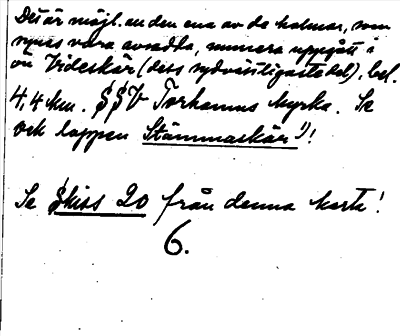 Det är möjl. en den ena av de holmar, som
synes vara avsedda, numera uppgått i
ön Videskär (dess sydvästligaste del), bel.
4,4 km. SSV Torhamns kyrka. Se
ock lappen Stämmaskär¹)!
Se Skiss 20 från denna karta!
6.